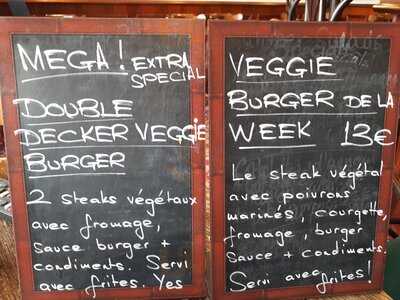 MEGA! EXTRA
SPECIAL
DOUBLE
DECKER VEGGIE
BURGER
2 steaks végétaux
avec fromage,
sauce burger +
condiments. Servi
avec frites. Yes
VEGGIE
BURGER DE LA
WEEK 13€
Le steak végétal
avec poivrons
marinés, courgette,
fromage, burger
sauce + condiments.
Servi avec frites!